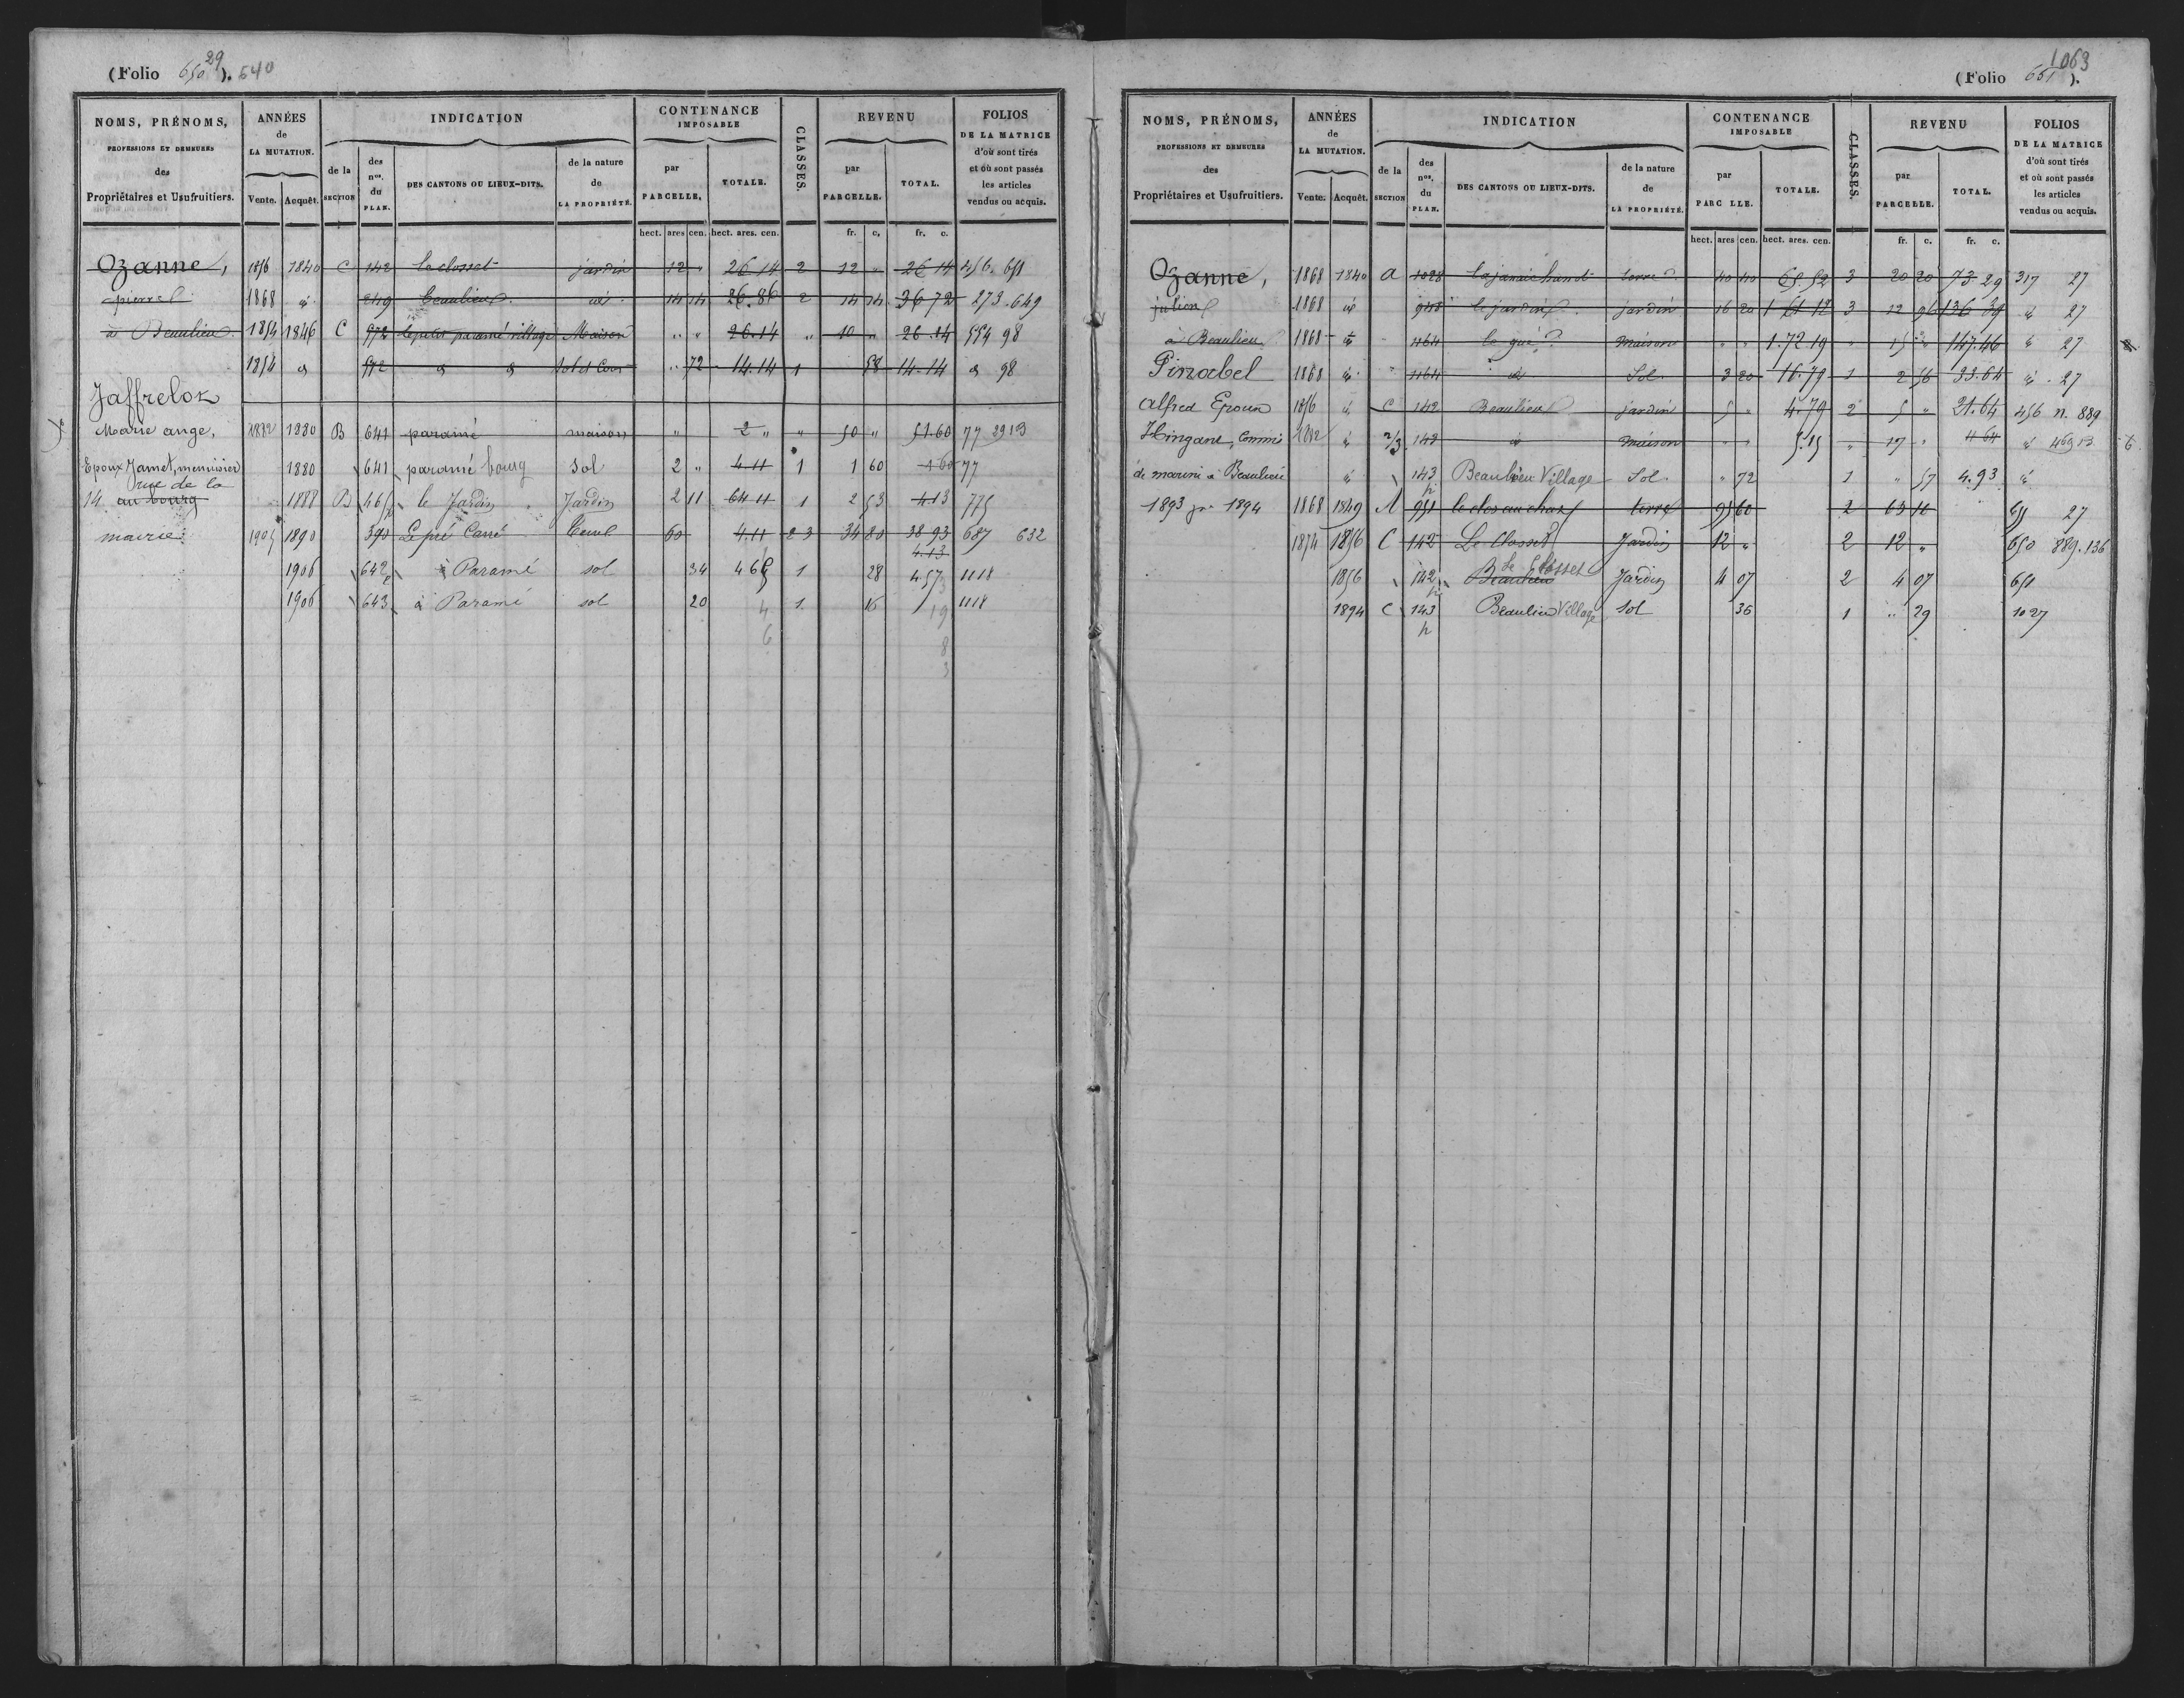 (Folio 650 29). 540
NOMS, PRÉNOMS,
PROFESSIONS ET DEMEURES
des
Propriétaires et Usufruitiers.
ANNÉES
de
LA MUTATION.
Vente. Acquêt.
INDICATION
de la
SECTION
des
nos.
du
PLAN.
DES CANTONS OU LIEUX-DITS.
de la nature
de
LA PROPRIÉTÉ.
CONTENANCE
IMPOSABLE
par
PARCELLE.
TOTALE.
CLASSES.
REVENU
par
PARCELLE.
TOTAL.
FOLIOS
DE LA MATRICE
d'où sont tirés
et où sont passés
les articles
vendus ou acquis.
hect. ares cen. hect. ares. cen. fr. c. fr. c.
Ozanne, 1856 1840 C 142 le closset jardin 12 " 26 14 2 12 " 26 14 456. 651
pierre 1868 id 249 beaulieu id 14 14 26.86 2 14 14 36 72 273. 649
à Beaulieu. 1854 1846 C 972 le petit paramé village Maison " " 26.14 " 10 " 26.14 554 98
1854 d 972 d d Sol et Cour " 72 14.14 1 58 14.14 d 98
Jaffrelot
Marie ange, 1882 1880 B 641 paramé maison " 2 " " 50 " 51.60 77 2913
Epoux Jamet, menuisier 1880 641 paramé bourg Sol 2 " 4 11 1 1 60 1 60 77
rue de la
14 au bourg 1888 B 465 le Jardin Jardin 2 11 64 11 1 2 53 4 13 775
mairie 1905 1890 390 Le pré Carré 60 4.11 2 3 34 80 38 93 687 632
4.13
1906 642 à Paramé sol 34 465 1 28 4.57 1118
1906 643 à Paramé sol 20 4 1 16 1118
6 19
8
3
(Folio 651). 1063
NOMS, PRÉNOMS,
PROFESSIONS ET DEMEURES
des
Propriétaires et Usufruitiers.
ANNÉES
de
LA MUTATION.
Vente. Acquêt.
INDICATION
de la
SECTION
des
nos.
du
PLAN.
DES CANTONS OU LIEUX-DITS.
de la nature
de
LA PROPRIÉTÉ.
CONTENANCE
IMPOSABLE
par
PARC LLE.
TOTALE.
CLASSES.
REVENU
par
PARCELLE.
TOTAL.
FOLIOS
DE LA MATRICE
d'où sont tirés
et où sont passés
les articles
vendus ou acquis.
hect. ares cen. hect. ares. cen. fr. c. fr. c.
Ozanne, 1868 1840 A 1028 terre 40 40 65.52 3 20 20 73 29 317 27
julien 1868 id 948 le jardin jardin 16 20 1 61 12 3 12 96 136 39 " 27
à Beaulieu 1868 id 1164 le gué maison " " 1.72 19 " 15 " 147.46 " 27
Pinabel 1868 id " 1164 id Sol. 3 20 16.79 1 2 56 33.64 id. 27
Alfred Epoux 1856 id C 142 Beaulieu jardin 5 " 4.79 2 5 " 21.64 456 n. 889
Hingant, Commis 1882 id 2/3 143 id maison " " 5.15 " 17 " 4 64 id 469 13
de marine à Beaulieu id 143 p Beaulieu Village Sol. " 72 1 " 57 4.93 id
1893 pr 1894 1868 1849 A 951 le clos terre 95 60 2 63 10 65 27
1874 1856 C 142 Le Closset Jardin 12 " 2 12 " 650 889.136
1856 142 p Beaulieu Le Closset Jardin 4 07 2 4 07 651
1894 C 143 p Beaulieu Village Sol 36 1 " 29 1027